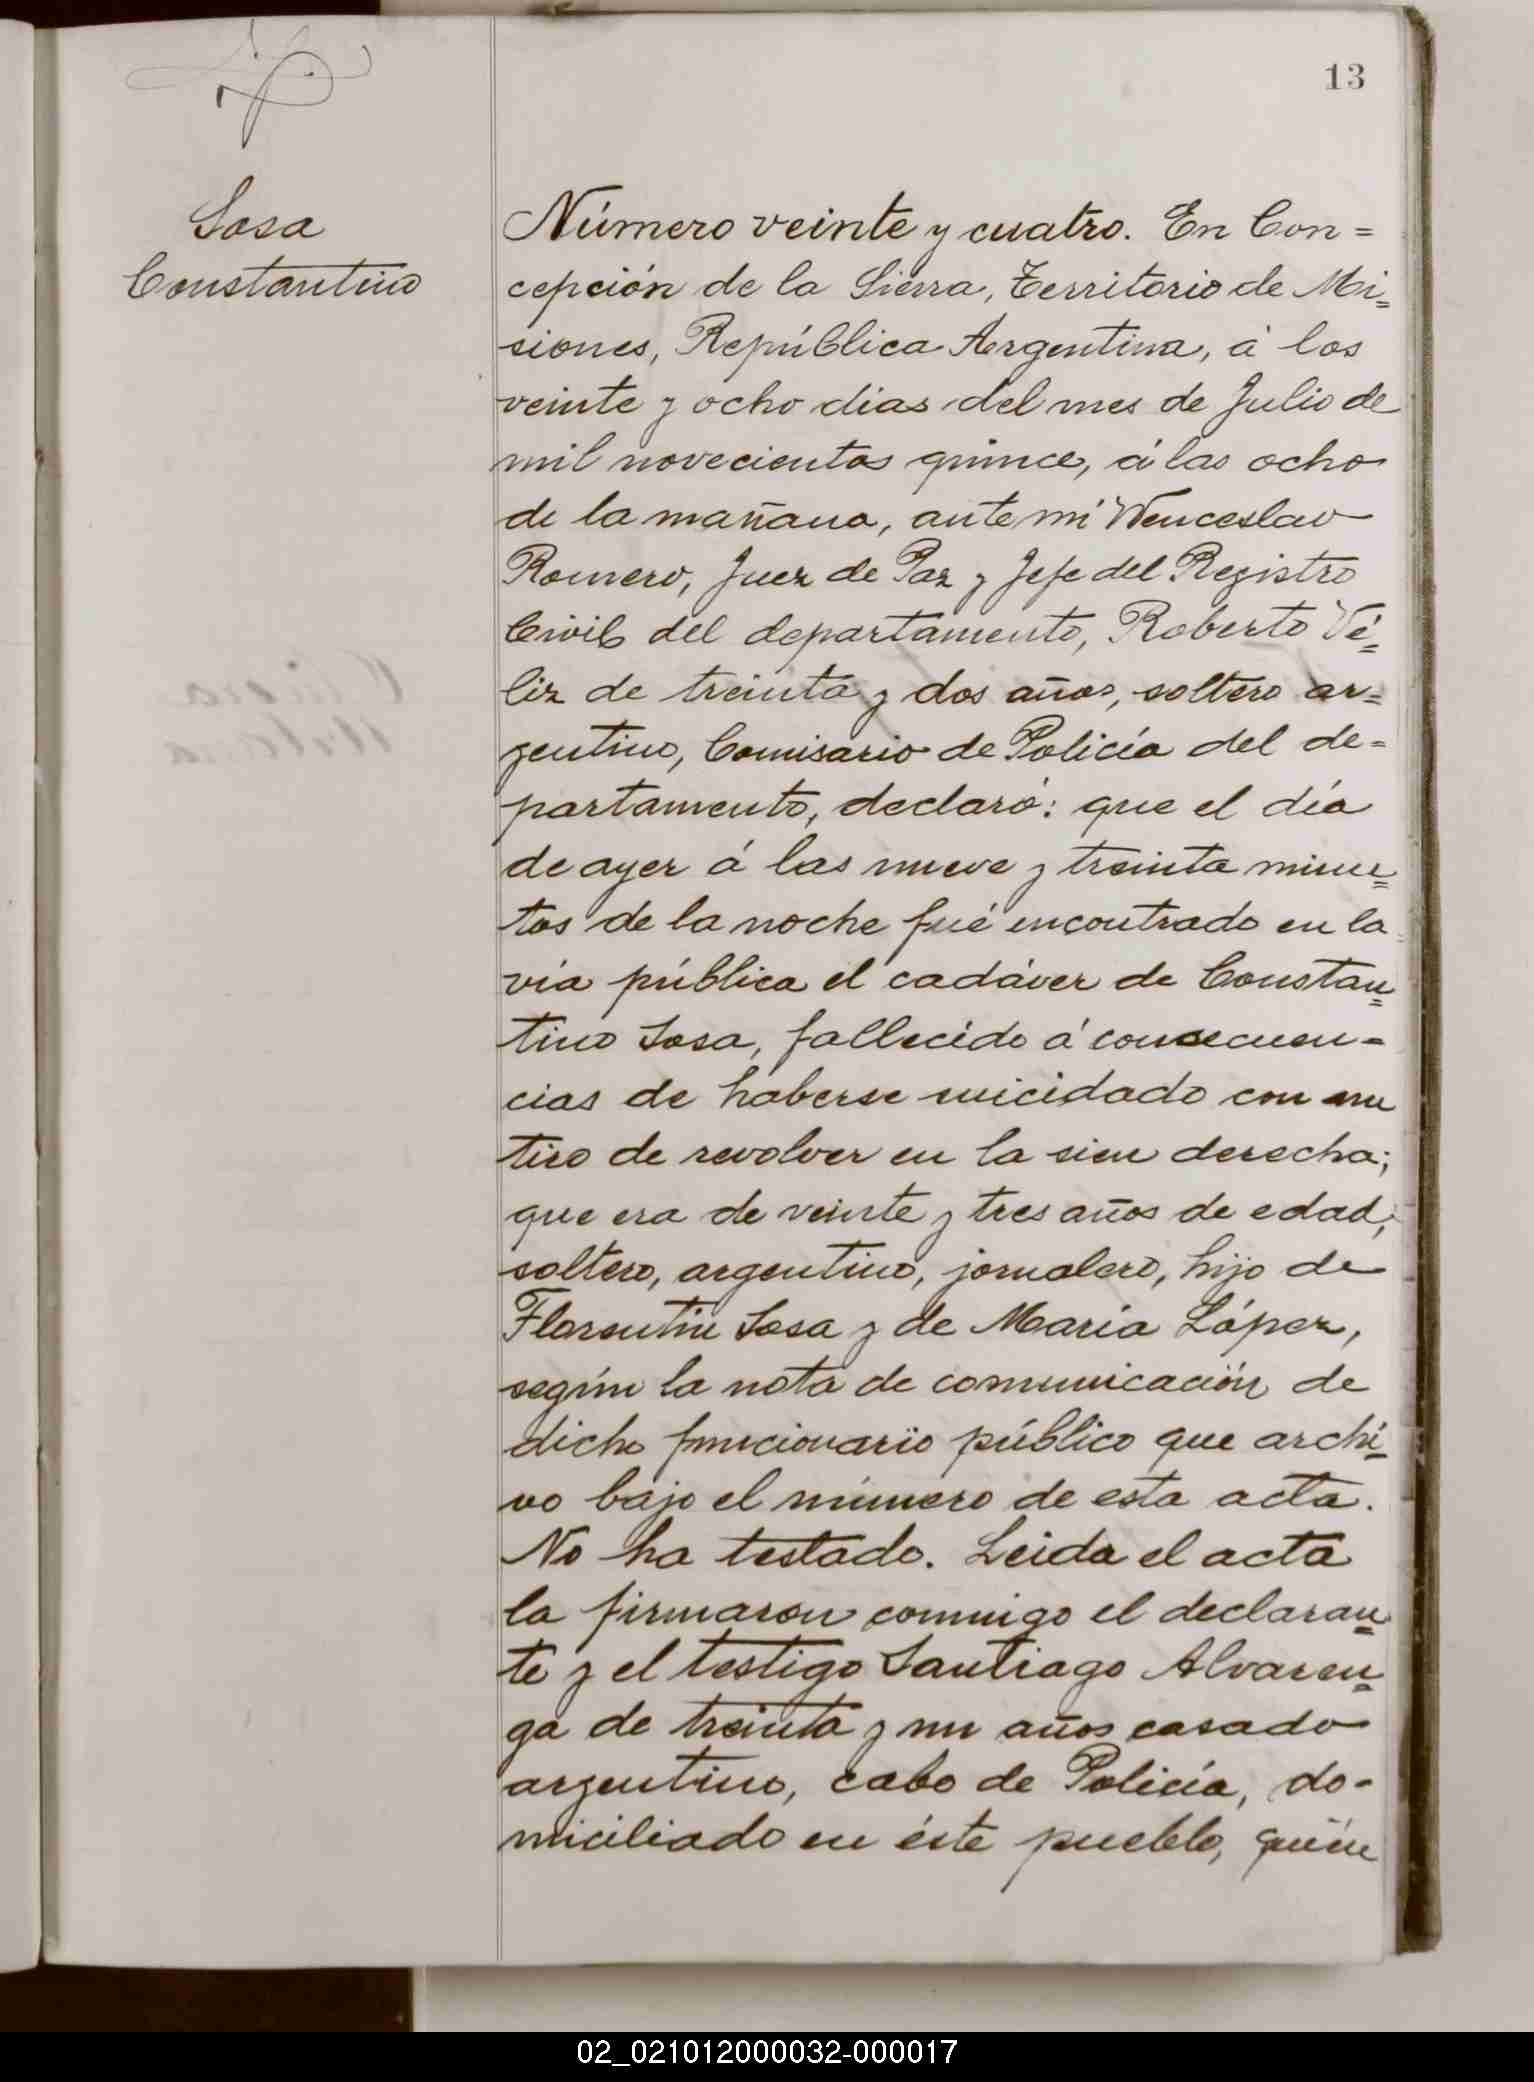 13
Sosa
Constantino
Número veinte y cuatro. En Con=
cepción de la Sierra, Territorio de Mi=
siones, República Argentina, á los
veinte y ocho dias del mes de Julio de
mil novecientos quince, á las ocho
de la mañana, ante mi Wenceslao
Romero, Juez de Paz y Jefe del Registro
Civil del departamento, Roberto Vé=
liz de treinta y dos años, soltero ar=
gentino, Comisario de Policía del de=
partamento, declaró: que el día
de ayer á las nueve y treinta minu=
tos de la noche fué encontrado en la
vía pública el cadáver de Constan=
tino Sosa, fallecido á consecuen=
cias de haberse suicidado con un
tiro de revolver en la sien derecha;
que era de veinte y tres años de edad,
soltero, argentino, jornalero, hijo de
Florentin Sosa y de María López,
según la nota de comunicación de
dicho funcionario público que archi=
vo bajo el número de esta acta.
No ha testado. Leida el acta
la firmaron conmigo el declaran=
te y el testigo Santiago Alvaren=
ga de treinta y un años casado
argentino, cabo de Policía, do=
miciliado en éste pueblo, quién
02_021012000032-000017